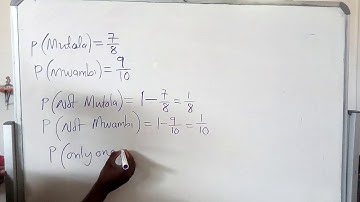 P(Mutola) = 7/8
P(Mwambi) = 9/10
P(Not Mutola) = 1 - 7/8 = 1/8
P(Not Mwambi) = 1 - 9/10 = 1/10
P(only one